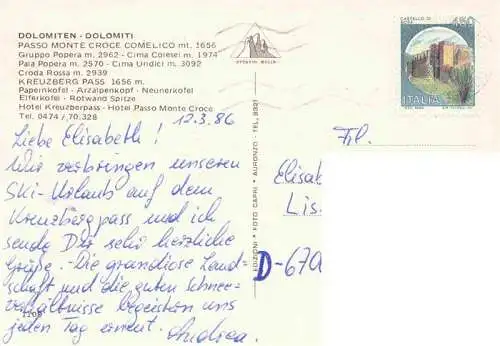 DOLOMITEN - DOLOMITI
PASSO MONTE CROCE COMELICO mt. 1656
Gruppo Popera m. 2962 - Cima Colesei m. 1974
Pala Popera m. 2570 - Cima Undici m. 3092
Croda Rossa m. 2939
KREUZBERG PASS 1656 m.
Papernkofel - Arzalpenkopf - Neunerkofel
Elferkofel - Rotwand Spitze
Hotel Kreuzberpass - Hotel Passo Monte Croce
Tel. 0474/70.328
12.3.86
Liebe Elisabeth!
Wir verbringen unseren
Ski-Urlaub auf dem
Kreuzbergpass und ich
sende Dir sehr herzliche
Grüße. Die grandiose Land-
schaft und die guten Schnee-
verhältnisse begeistern uns
jeden Tag erneut. Andrea.
1109
EDIZIONI * FOTO CAPRI * AURONZO - TEL. 9391
CASTELLO DI
450
ITALIA
Frl.
Elisab
Lis
D-670